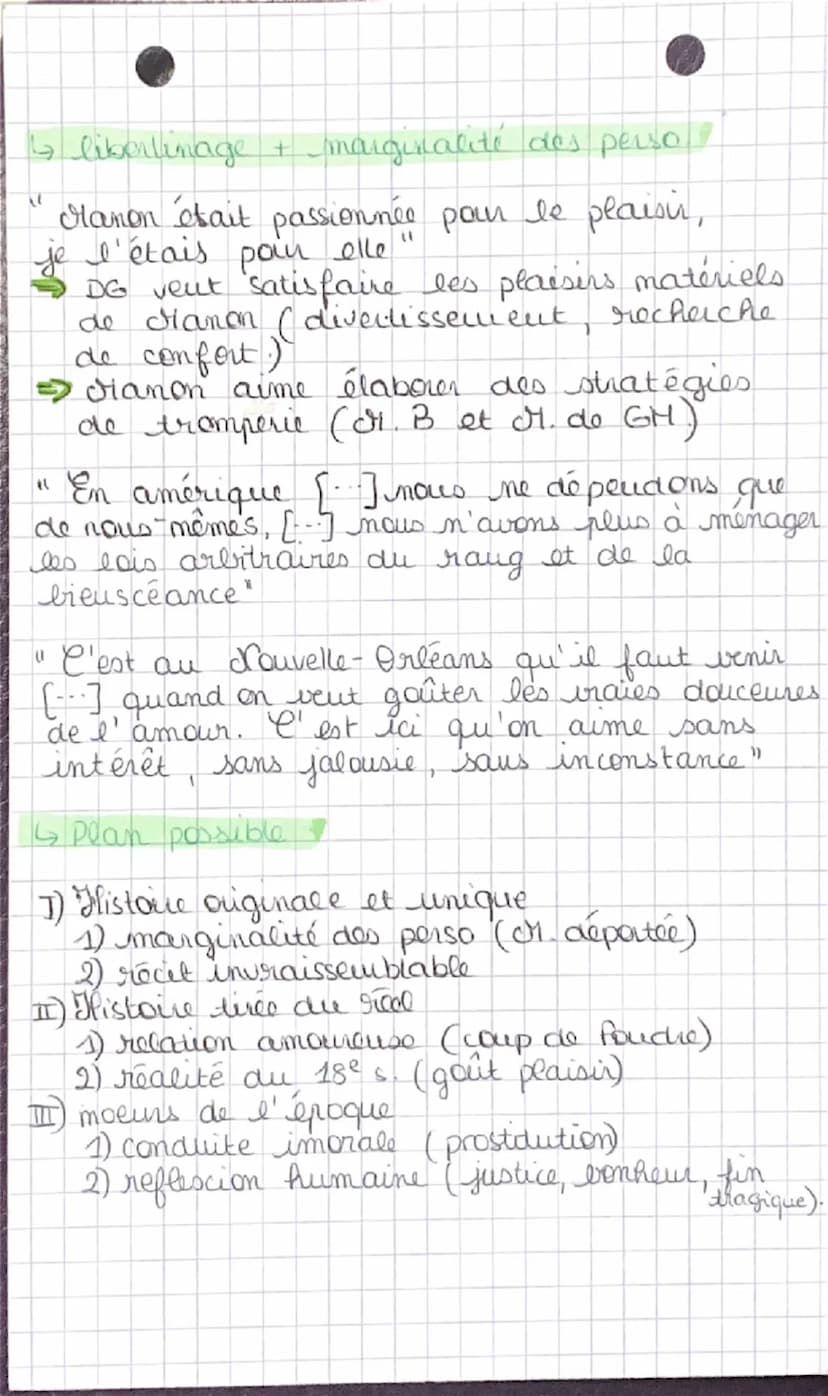 ↳ libertinage + marginalité des perso
" Manon était passionnée pour le plaisir,
je l'étais pour elle"
⇒ DG veut satisfaire les plaisirs matériels
de Manon (divertissement, recherche
de confort.)
⇒ Manon aime élaborer des stratégies
de tromperie (M. B et M. de GM)
" En amérique [...] nous ne dépendons que
de nous-mêmes, [...] nous n'avons plus à ménager
les lois arbitraires du rang et de la
bienscéance"
" C'est au Nouvelle-Orléans qu'il faut venir
[...] quand on veut goûter les vraies douceures
de l'amour. C'est ici qu'on aime sans
intérêt, sans jalousie, sans inconstance"
↳ Plan possible
I) Histoire originale et unique
1) marginalité des perso (M. déportée)
2) récit invraissemblable
II) Histoire tirée du réel
1) relation amoureuse (coup de foudre)
2) réalité du 18e s. (goût plaisir)
III) moeurs de l'époque
1) conduite imorale (prostitution)
2) reflexcion humaine (justice, bonheur, fin
tragique).